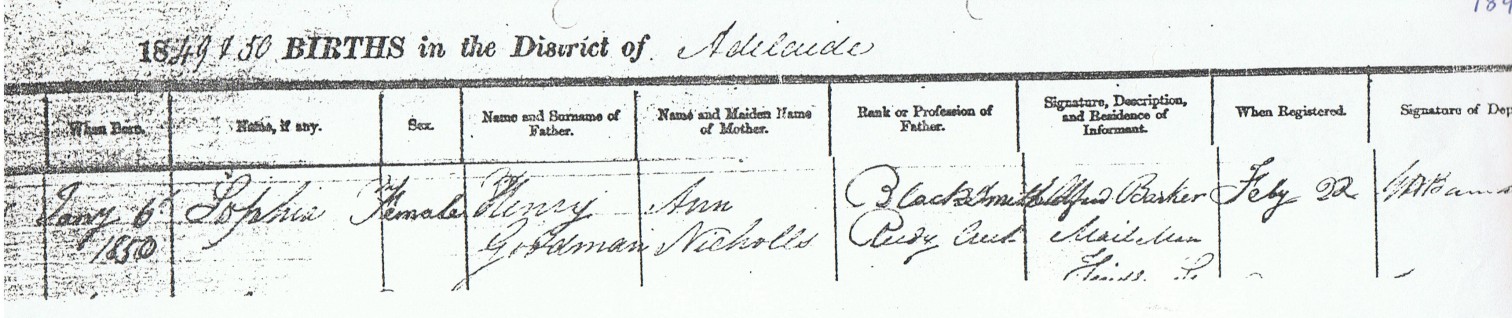 1849 & 50 BIRTHS in the District of Adelaide
When Born.
Name, if any.
Sex.
Name and Surname of
Father.
Name and Maiden Name
of Mother.
Rank or Profession of
Father.
Signature, Description,
and Residence of
Informant.
When Registered.
Signature of Dep
Jany 6
1850
Sophia
Female
Henry
Goodman
Ann
Nicholls
Blacksmith
Reedy Creek
Alfred Barker
Mail Man
Feby 22